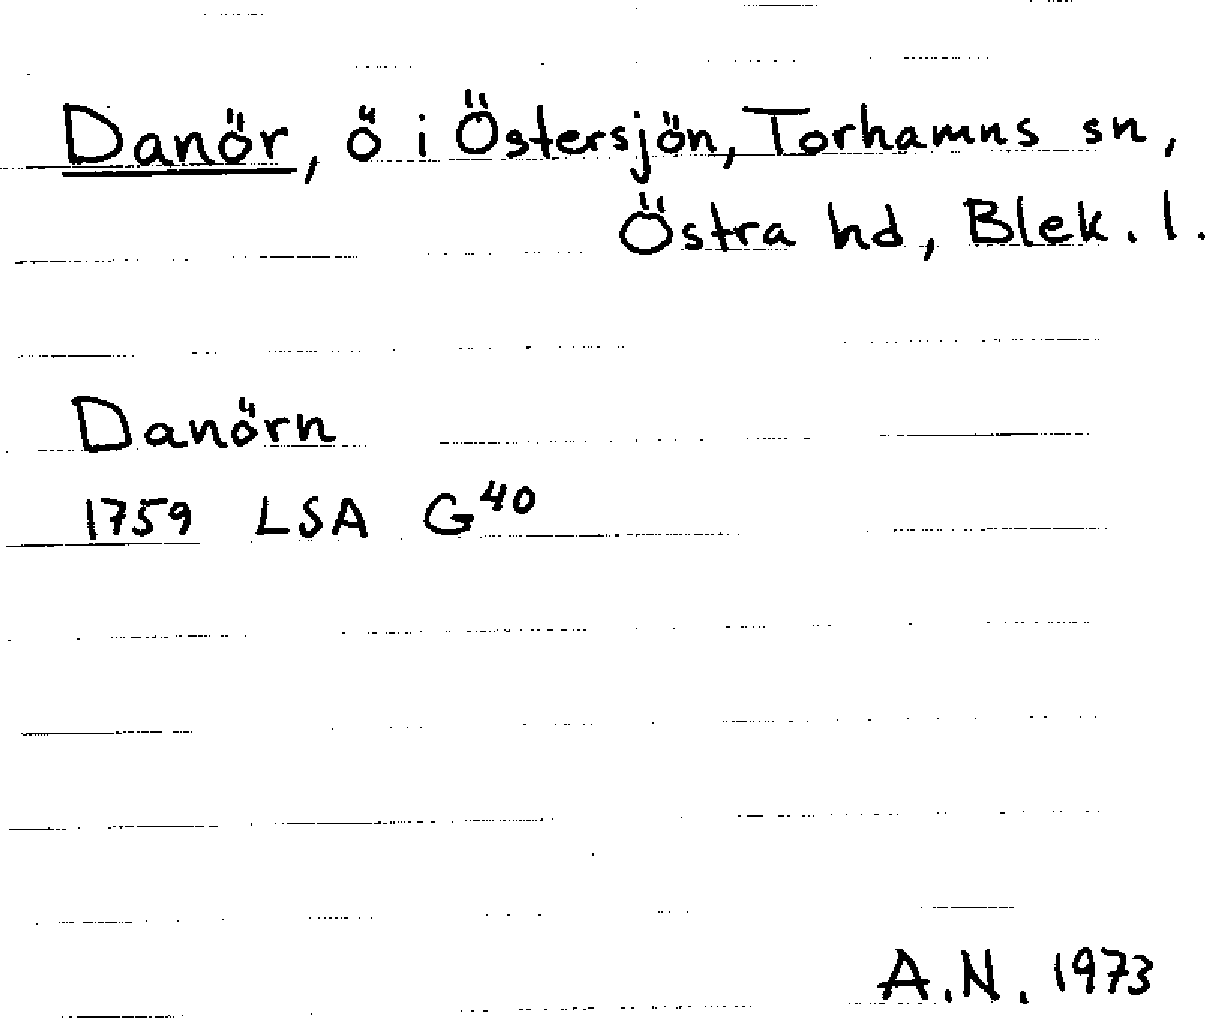 Danör, ö i Östersjön, Torhamns sn,
Östra hd, Blek. l.
Danörn
1759 LSA G⁴⁰
A.N. 1973